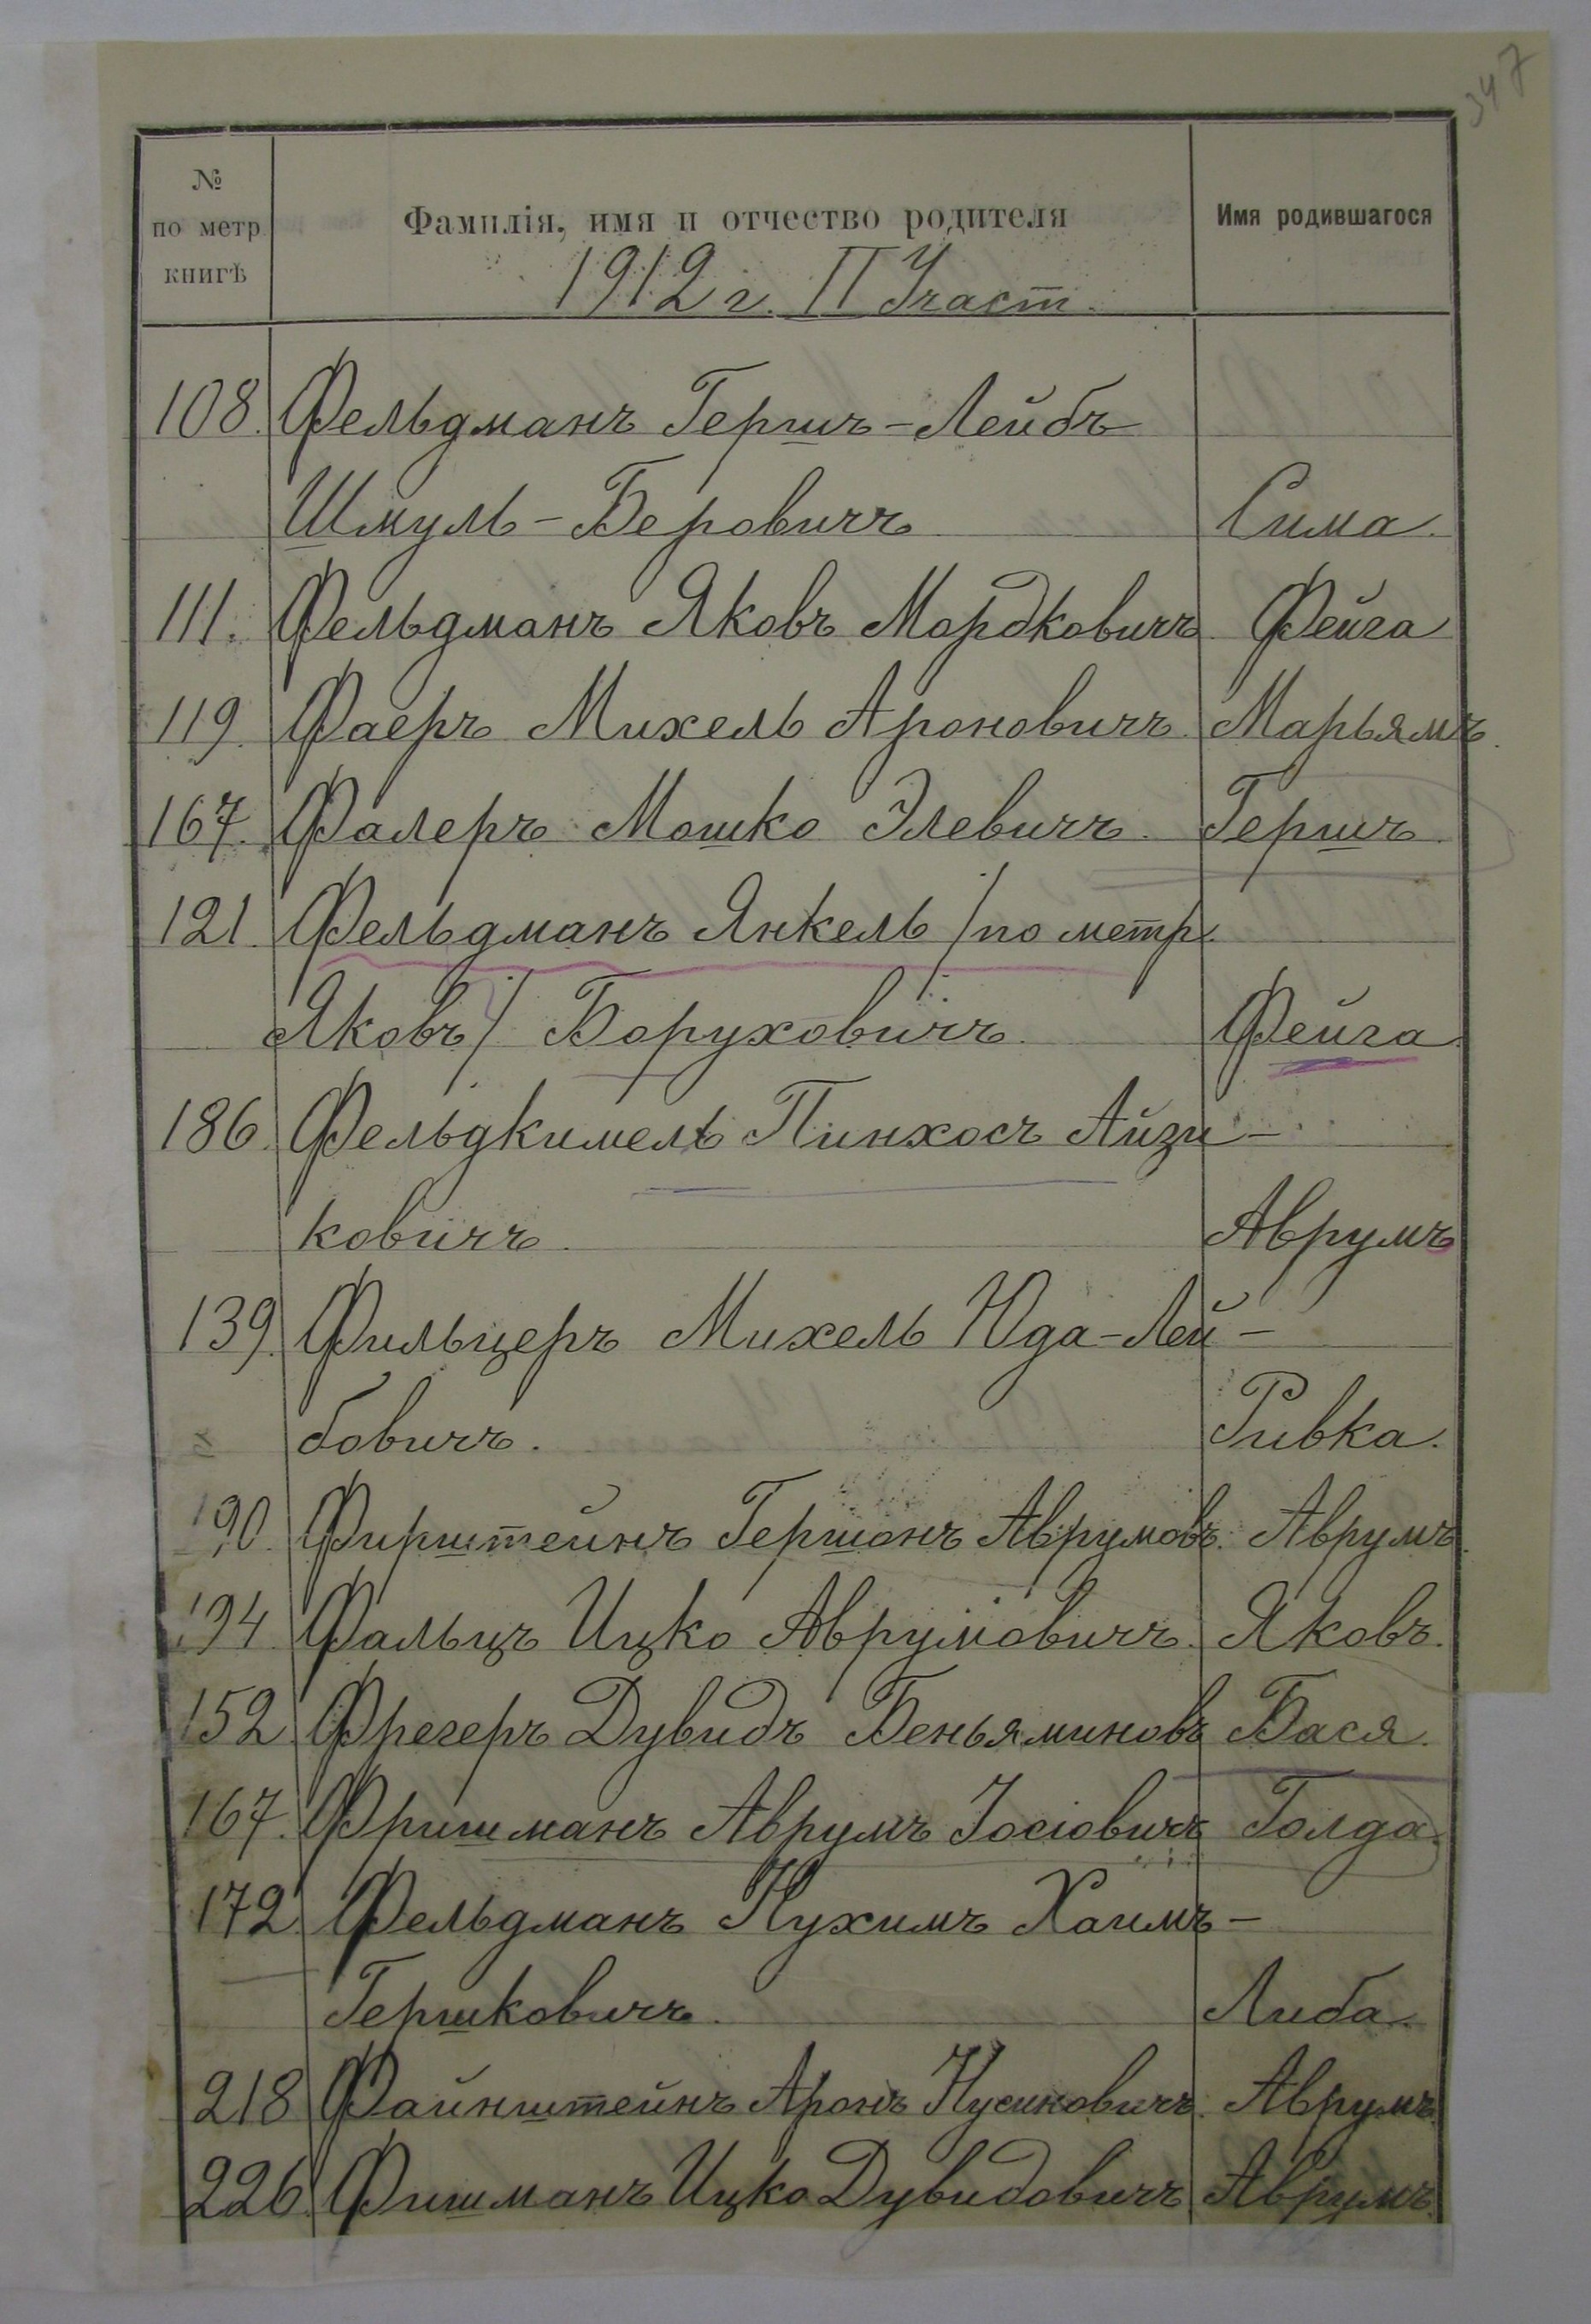 347
№ по метр книгѣ Фамилія, имя и отчество родителя Имя родившагося
1912 г. II Участ.
108. Фельдманъ Гершъ-Лейбъ
Шмуль-Беровичъ Сима.
111. Фельдманъ Яковъ Мордковичъ Фейга
119. Фаеръ Михель Ароновичъ. Марьямъ.
167. Фалеръ Мошко Элевичъ. Гершъ.
121. Фельдманъ Янкель /по метр.
Яковъ/ Боруховичъ. Фейга.
186. Фельдкимель Пинхосъ Айзи-
ковичъ. Аврумъ
139. Фильцеръ Михель Юда-Лей-
бовичъ. Ривка.
190. Фирштейнъ Гершонъ Аврумовъ. Аврумъ.
194. Фальцъ Ицко Аврумовичъ. Яковъ.
152. Фрегеръ Дувидъ Беньяминовъ Бася.
167. Фришманъ Аврумъ Іосіовичъ Голда.
172. Фельдманъ Нухимъ Хаимъ-
Гершковичъ. Либа.
218 Файнштейнъ Аронъ Нусиновичъ. Аврумъ.
226. Фишманъ Ицко Дувидовичъ. Аврумъ.